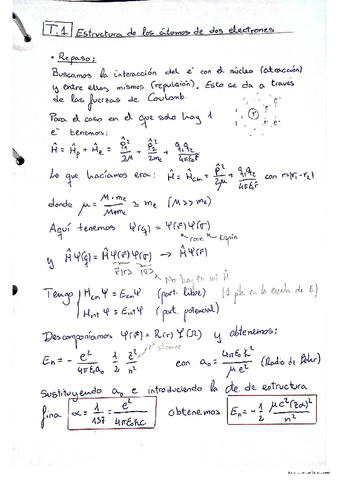 T.1 Estructura de los átomos de dos electrones
• Repaso:
Buscamos la interacción del e⁻ con el núcleo (atracción)
y entre ellos mismos (repulsión). Esto se da a través
de las fuerzas de Coulomb.
Para el caso en el que solo hay 1
e⁻ tenemos:
Ĥ = Ĥp + Ĥe = p̂₁²/2M + p̂₂²/2me + q₁q₂/4πε₀r̂
Lo que hacíamos era: Ĥ = Ĥcm + p̂²/2μ + q₁q₂/4πε₀r̂ con r=|r₁-r₂|
donde μ = M·me/M+me ≃ me (M >> me)
Aquí tenemos Ψ(q) = Ψ(r⃗) Ψ(σ)
y ĤΨ(q) = ĤΨ(r⃗)Ψ(σ) → ĤΨ(r⃗)
No hay en mi Ĥ
Tengo Hcm Ψ = Ecm Ψ (part. libre) (1 pto en la escala de E)
Hint Ψ = EΨ (part. potencial)
Descomponíamos Ψ(r⃗) = R(r) Y(Ω) y obtenemos:
En = - e²/4πε₀a₀ 1/2 z²/n² con a₀ = 4πε₀ħ²/μe² (Radio de Bohr)
Sustituyendo a₀ e introduciendo la cte. de estructura
fina α = 1/137 = e²/4πε₀ħc obtenemos En = - 1/2 μc²(zα)²/n²